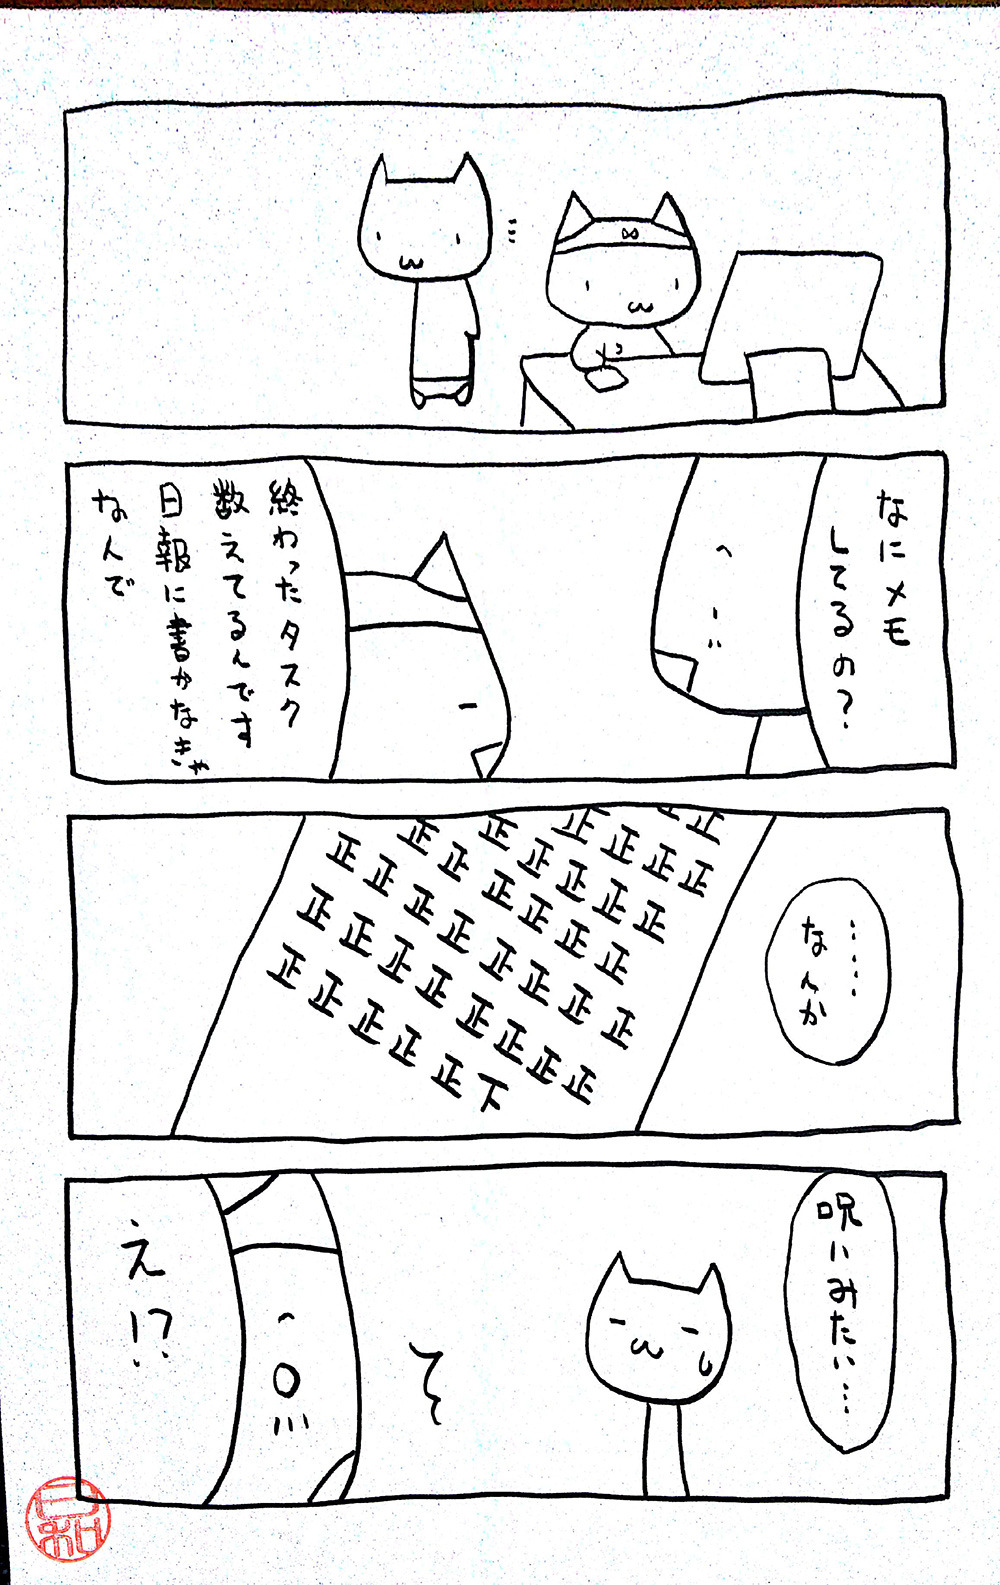 なにメモ
してるの？
終わったタスク
数えてるんです
日報に書かなきゃ
なんで
正 正
正 正 正 正
正 正 正 正 正
正 正 正 正 正 正
正 正 正 正 正 正 正 正
正 正 正 正 正 正 正 正
正 正 正 正 正 下
‥‥‥
なんか
呪いみたい…
え!?